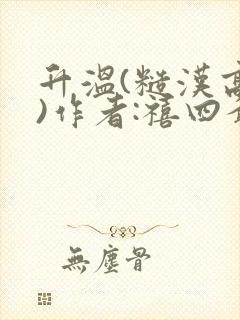 升温(糙漢高
)作者:禧四
無塵骨